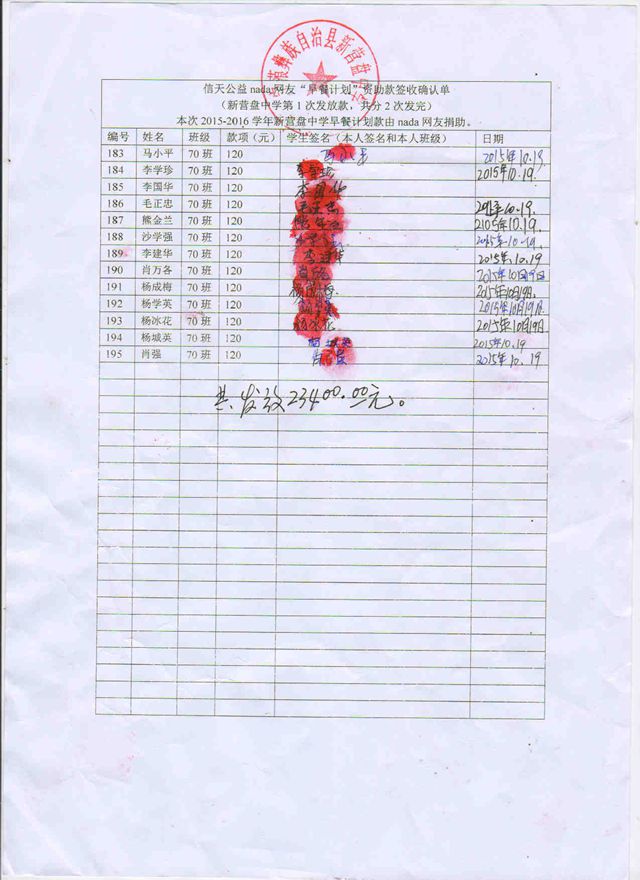 彝族自治县新营盘中
信天公益 nada 网友“早餐计划”资助款签收确认单
（新营盘中学第 1 次发放款，共分 2 次发完）
本次 2015-2016 学年新营盘中学早餐计划款由 nada 网友捐助。
编号 姓名 班级 款项（元） 学生签名（本人签名和本人班级） 日期
183 马小平 70 班 120 2015年10.19.
184 李学珍 70 班 120 2015年10.19.
185 李国华 70 班 120 李国华
186 毛正忠 70 班 120 毛正忠 10.19.
187 熊金兰 70 班 120 2105年10.19.
188 沙学强 70 班 120 2015年10.19.
189 李建华 70 班 120 李建华 2015年.10.19
190 肖万各 70 班 120 2015年10月19日
191 杨成梅 70 班 120 杨成梅 2015年10月19日.
192 杨学英 70 班 120 2015年10月19日.
193 杨冰花 70 班 120 杨冰花 2015年10月19日
194 杨城英 70 班 120 2015年10.19
195 肖强 70 班 120 2015年10.19
共发放23400.00元。